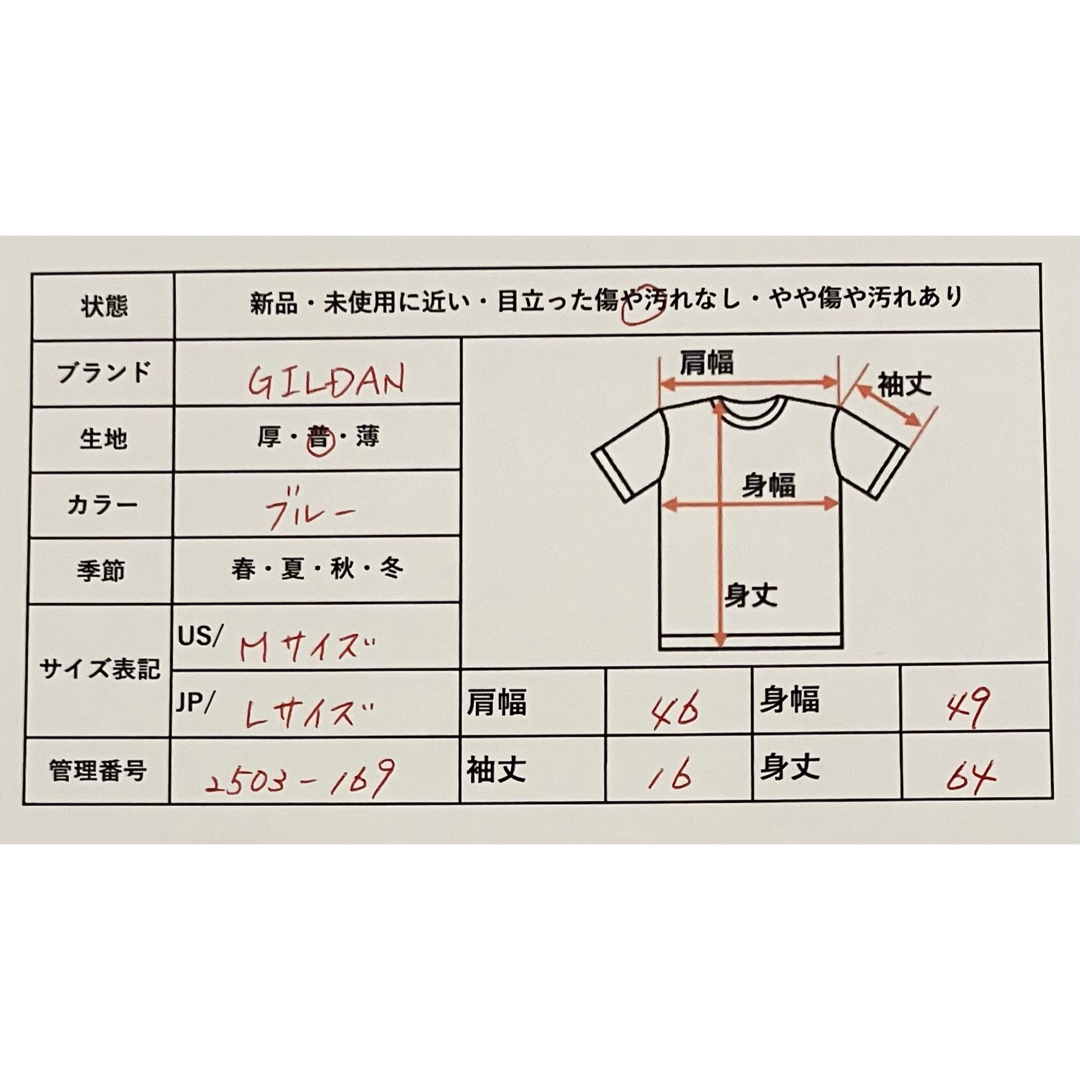 状態 新品・未使用に近い・目立った傷や汚れなし・やや傷や汚れあり
ブランド GILDAN
生地 厚・普・薄
カラー ブルー
季節 春・夏・秋・冬
サイズ表記
US/ Mサイズ
JP/ Lサイズ
管理番号 2503-169
肩幅
袖丈
身幅
身丈
肩幅 46 身幅 49
袖丈 16 身丈 64